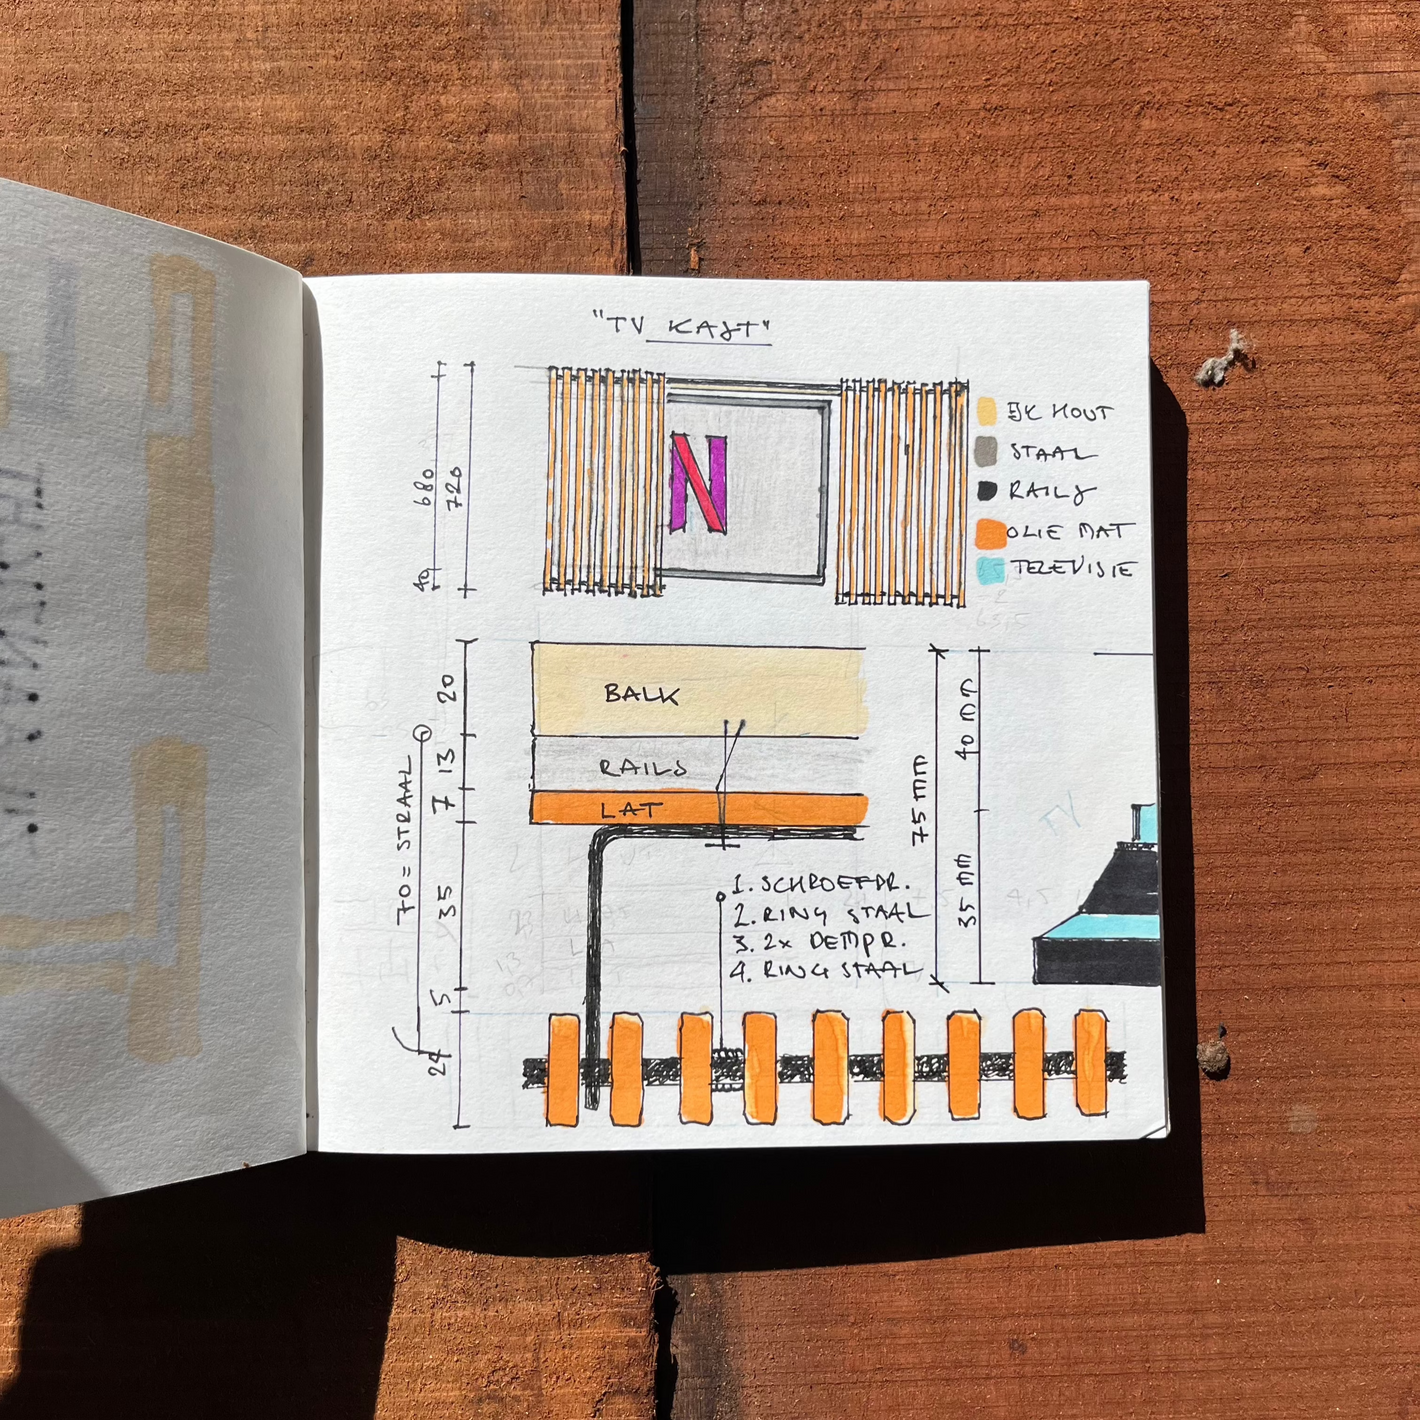 "TV KAST"
680
720
40
N
EIK HOUT
STAAL
RAILS
OLIE MAT
TELEVISIE
20
13
7
35
5
24
70 = STRAAL
BALK
RAILS
LAT
75 mm
40 mm
35 mm
TV
1. SCHROEFDR.
2. RING STAAL
3. 2x DEMPR.
4. RING STAAL